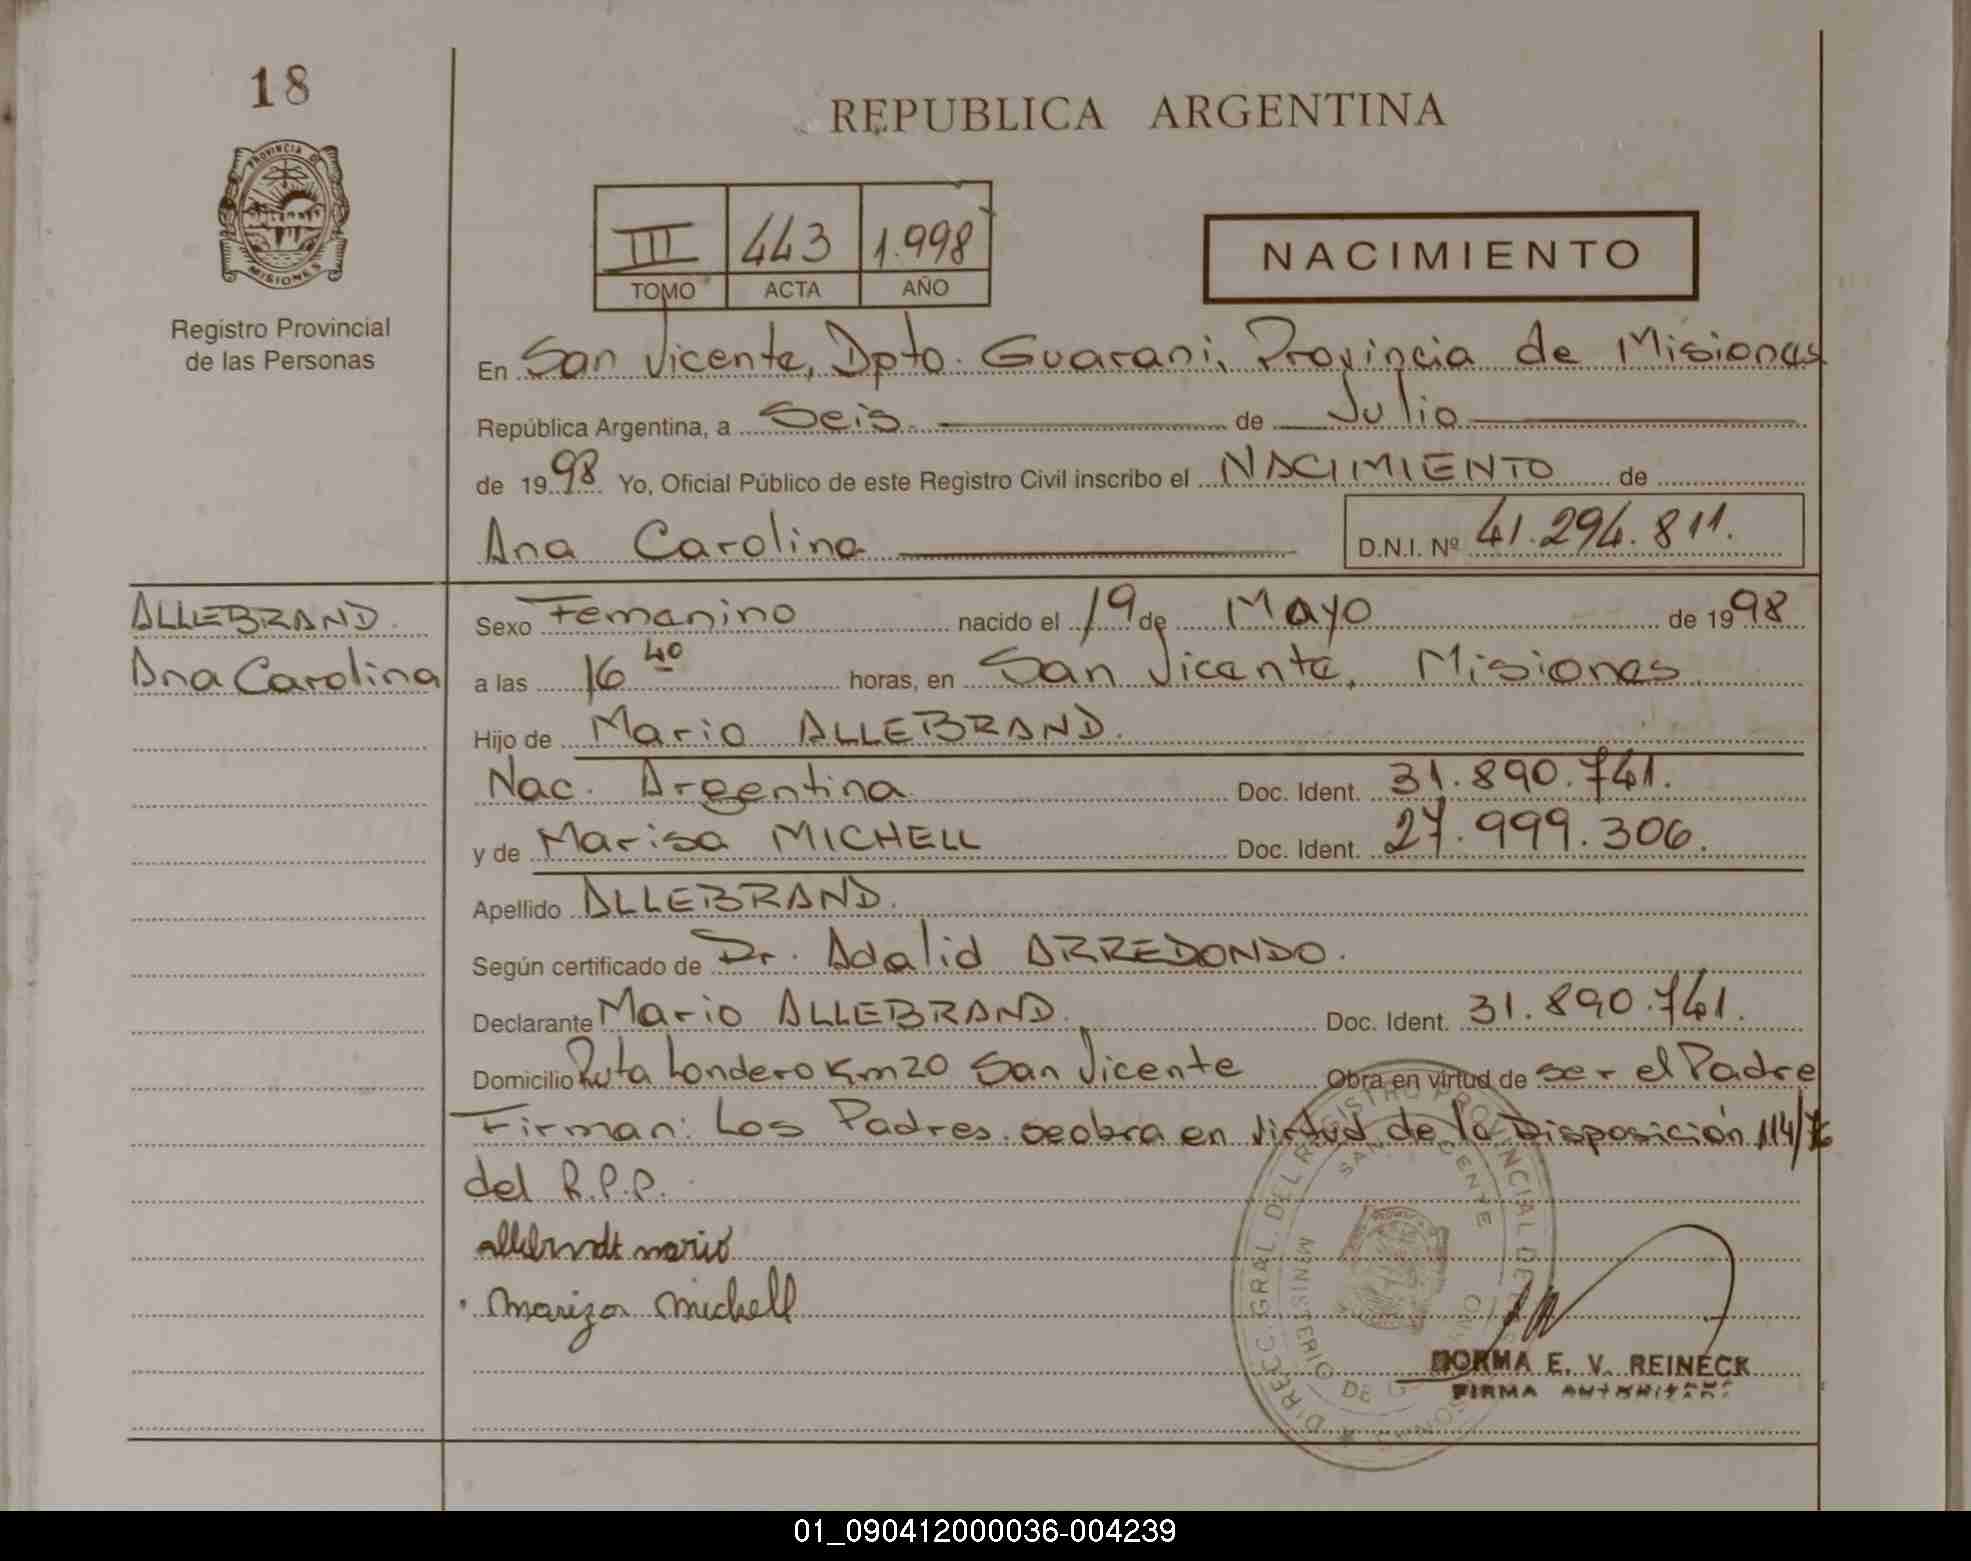 18
PROVINCIA DE
MISIONES
Registro Provincial
de las Personas
REPUBLICA ARGENTINA
III 443 1.998
TOMO ACTA AÑO
NACIMIENTO
En San Vicente, Dpto. Guarani, Provincia de Misiones
República Argentina, a Seis de Julio
de 1998 Yo, Oficial Público de este Registro Civil inscribo el NACIMIENTO de
Ana Carolina D.N.I. Nº 41.294.811.
ALLEBRAND.
Ana Carolina
Sexo Femenino nacido el 19 de Mayo de 1998
a las 16 40 horas, en San Vicente, Misiones
Hijo de Mario ALLEBRAND.
Nac. Argentina Doc. Ident. 31.890.741.
y de Marisa MICHELL Doc. Ident. 27.999.306.
Apellido ALLEBRAND.
Según certificado de Dr. Adalid ARREDONDO.
Declarante Mario ALLEBRAND. Doc. Ident. 31.890.741.
Domicilio Ruta Londero Km 20 San Vicente Obra en virtud de ser el Padre
Firman: Los Padres. se obra en virtud de la Disposición 114/76
del R.P.P.
mario
Mariza Michell
DIRECC. GRAL. DEL REGISTRO PROVINCIAL DE
MINISTERIO DE
NORMA E. V. REINECK
FIRMA AUTORIZADA
01_090412000036-004239